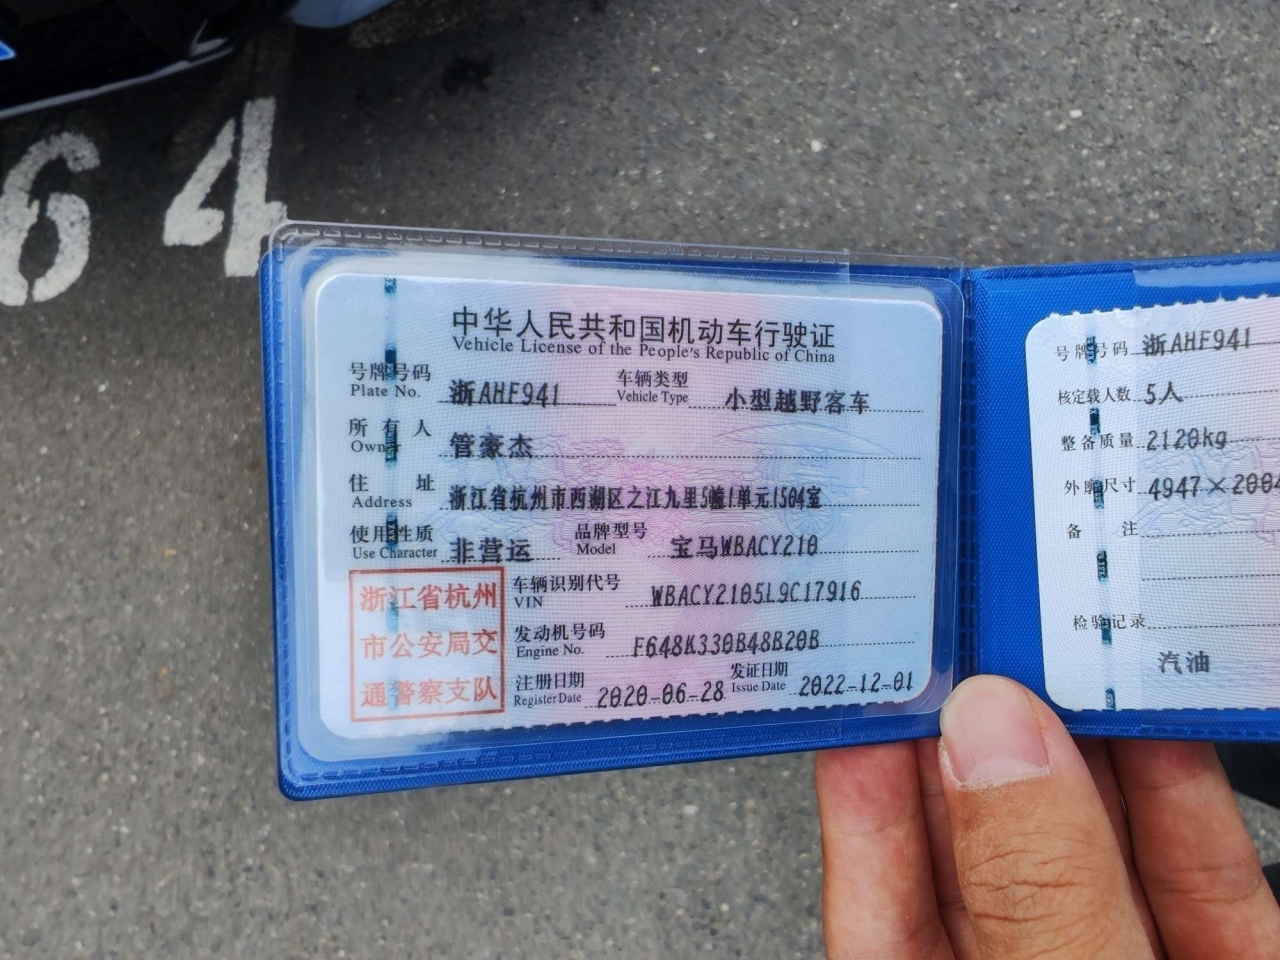 64
中华人民共和国机动车行驶证
Vehicle License of the People's Republic of China
号牌号码 浙AHF941 车辆类型 小型越野客车
Plate No. Vehicle Type
所有人 管豪杰
Owner
住址 浙江省杭州市西湖区之江九里5幢1单元1504室
Address
使用性质 非营运 品牌型号 宝马WBACY210
Use Character Model
浙江省杭州
市公安局交
通警察支队
车辆识别代号 WBACY2105L9C17916
VIN
发动机号码 F648K330B48B20B
Engine No.
注册日期 2020-06-28 发证日期 2022-12-01
Register Date Issue Date
号牌号码 浙AHF941
核定载人数 5人
整备质量 2120kg
外廓尺寸 4947×2004
备注
检验记录
汽油